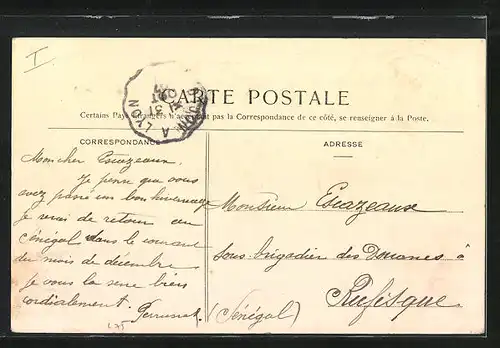 I
CARTE POSTALE
Certains Pays étrangers n'acceptant pas la Correspondance de ce côté, se renseigner à la Poste.
CORRESPONDANCE
ADRESSE
A LYON
31
Mon cher Escazeaux.
Je pense que vous
avez passé un bon hivernage
je serai de retour au
Sénégal dans le courant
du mois de décembre
je vous la serre bien
cordialement.
Monsieur Escazeaux
sous-brigadier des Douanes à
Rufisque
(Sénégal)